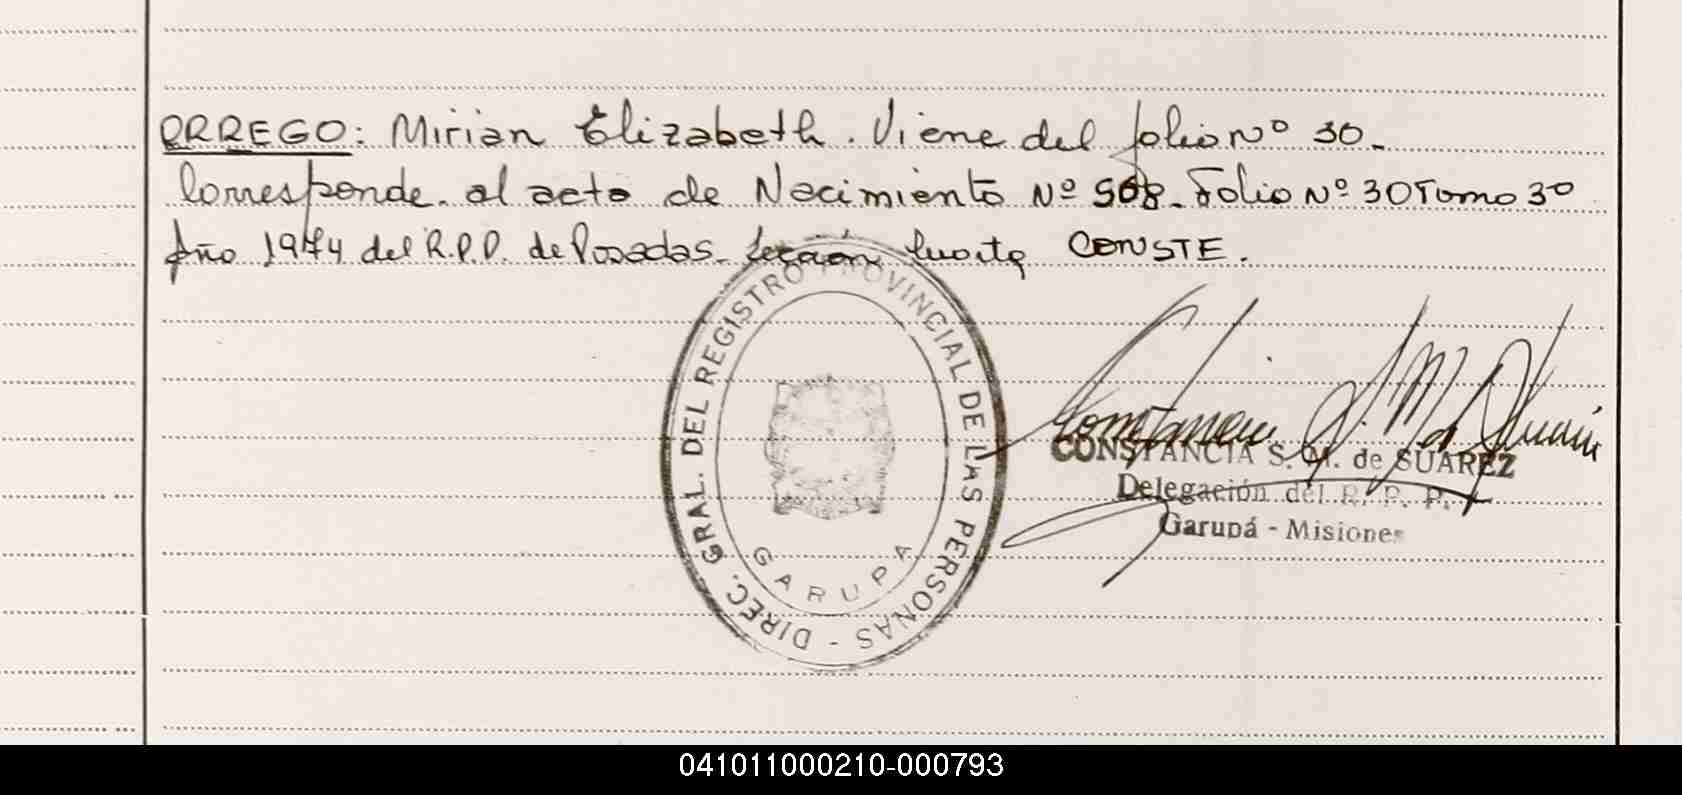 ORREGO: Mirian Elizabeth. Viene del folio Nº 30.-
Corresponde al acta de Nacimiento Nº 508- Folio Nº 30 Tomo 3º
Año 1974 del R.P.P. de Posadas- Sección Cuarta CONSTE.
DIREC. GRAL. DEL REGISTRO PROVINCIAL DE LAS PERSONAS -
GARUPA
CONSTANCIA S. M. de SUAREZ
Delegación del R. P. P.
Garupá - Misiones
041011000210-000793